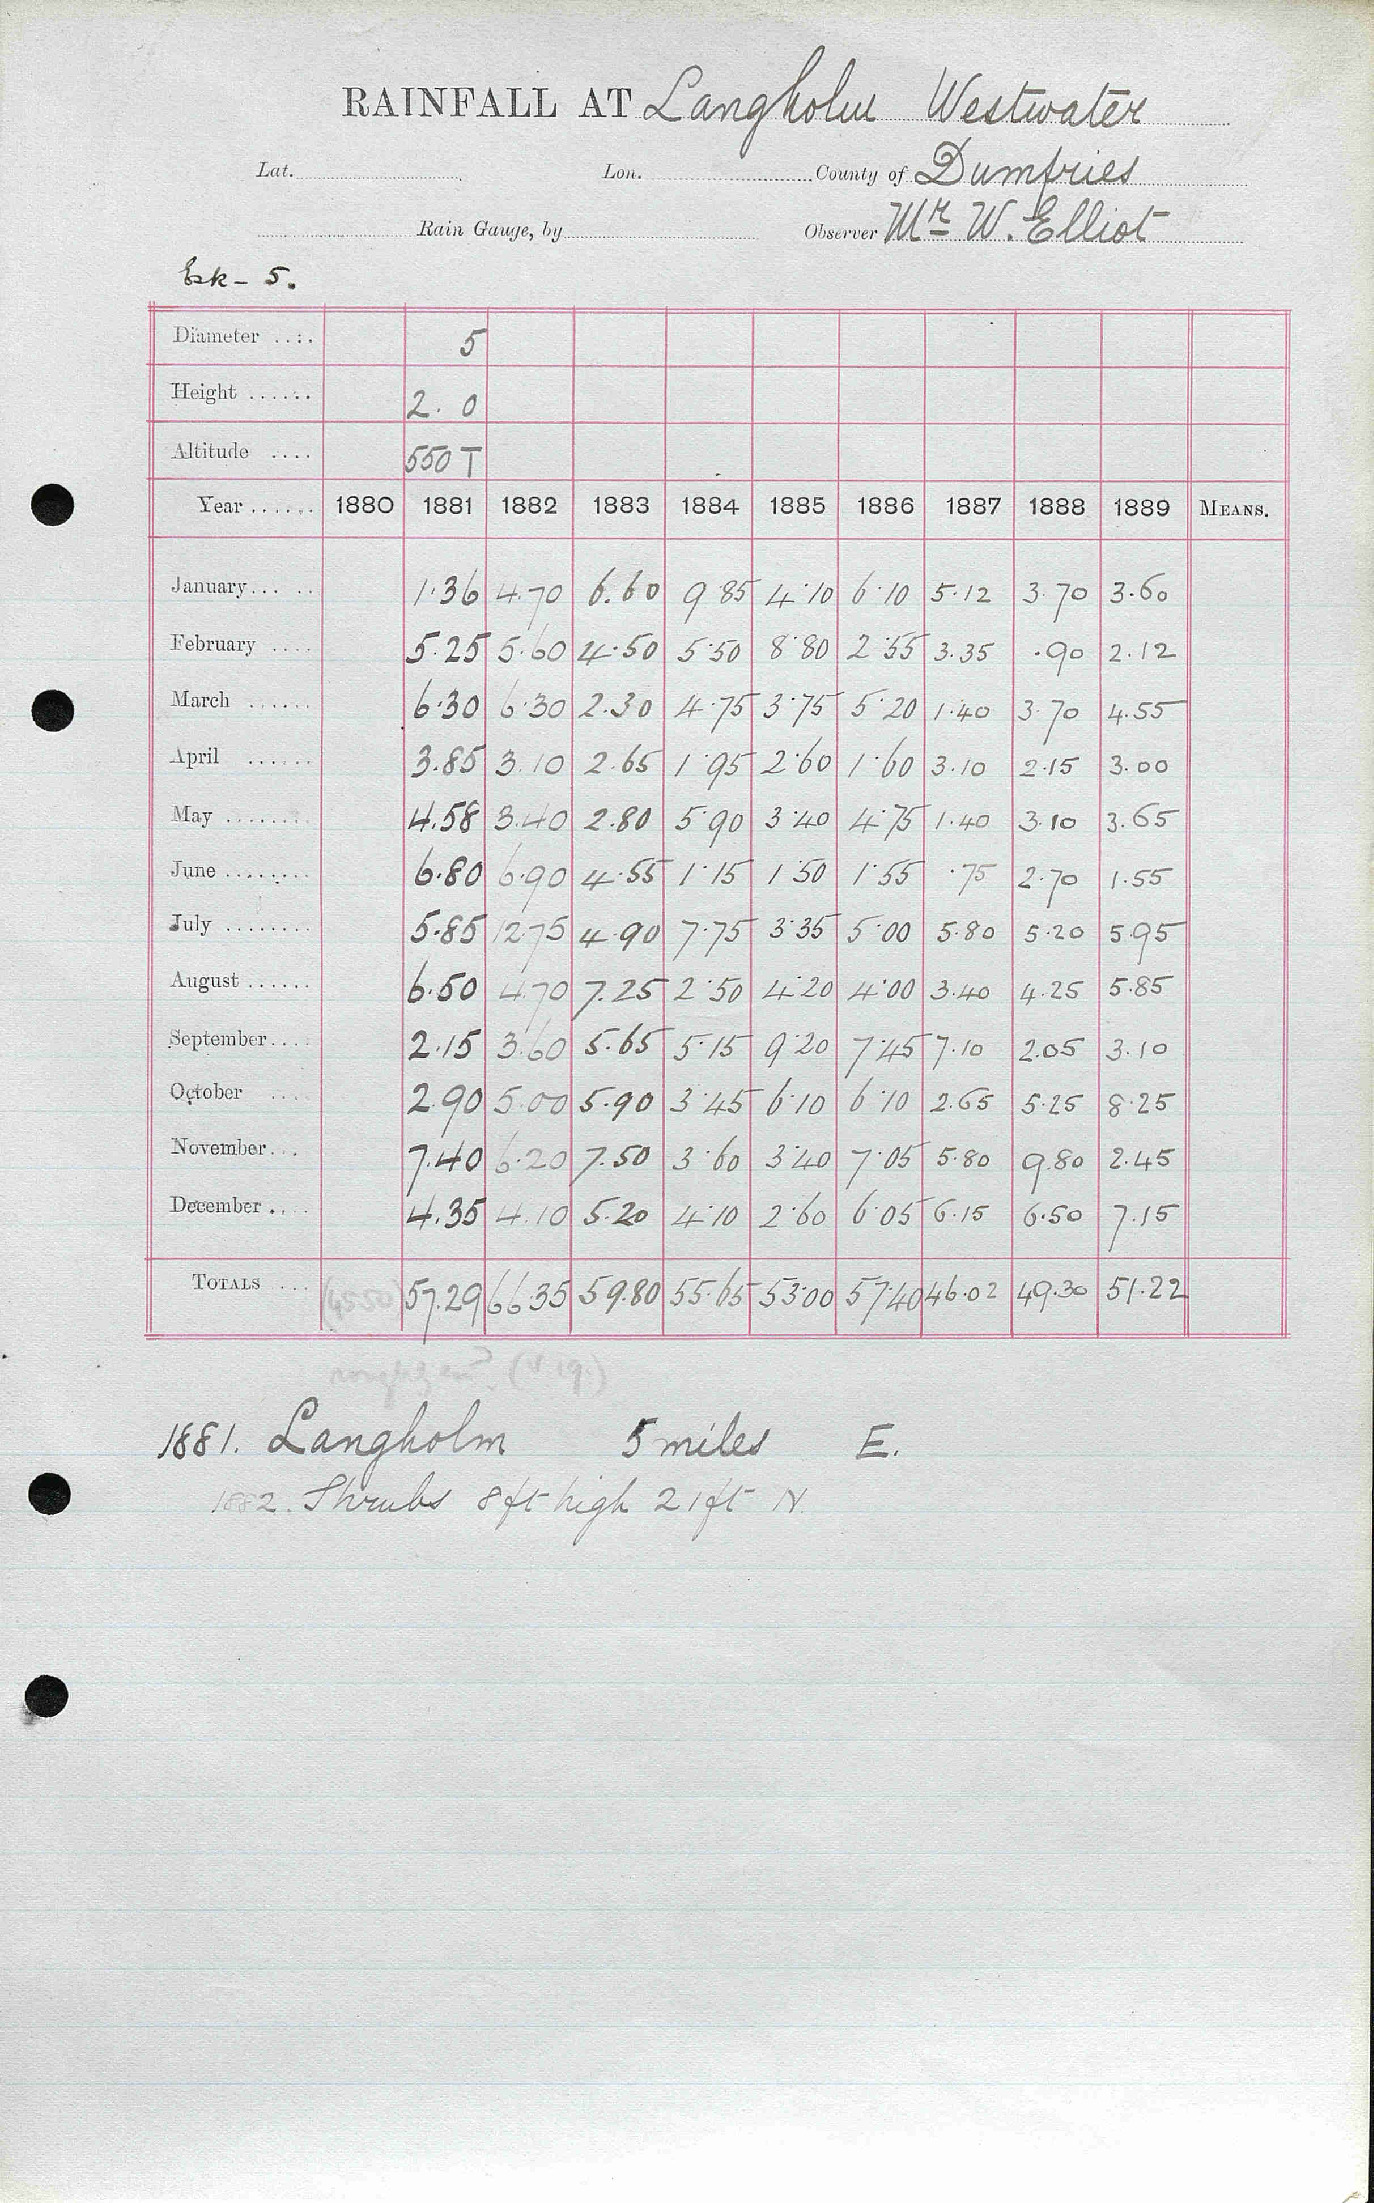 RAINFALL AT Langholm Westwater
Lat. Lon. County of Dumfries
Rain Gauge, by Observer Mr W. Elliot
Esk - 5.
Diameter 5
Height 2. 0
Altitude 550 T
Year 1880 1881 1882 1883 1884 1885 1886 1887 1888 1889 MEANS.
January 1.36 4.70 6.60 9.85 4.10 6.10 5.12 3.70 3.60
February 5.25 5.60 4.50 5.50 8.80 2.55 3.35 .90 2.12
March 6.30 6.30 2.30 4.75 3.75 5.20 1.40 3.70 4.55
April 3.85 3.10 2.65 1.95 2.60 1.60 3.10 2.15 3.00
May 4.58 3.40 2.80 5.90 3.40 4.75 1.40 3.10 3.65
June 6.80 6.90 4.55 1.15 1.50 1.55 .75 2.70 1.55
July 5.85 12.75 4.90 7.75 3.35 5.00 5.80 5.20 5.95
August 6.50 4.70 7.25 2.50 4.20 4.00 3.40 4.25 5.85
September 2.15 3.60 5.65 5.15 9.20 7.45 7.10 2.05 3.10
October 2.90 5.00 5.90 3.45 6.10 6.10 2.65 5.25 8.25
November 7.40 6.20 7.50 3.60 3.40 7.05 5.80 9.80 2.45
December 4.35 4.10 5.20 4.10 2.60 6.05 6.15 6.50 7.15
TOTALS (4550) 57.29 66.35 59.80 55.65 53.00 57.40 46.02 49.30 51.22
1881. Langholm 5 miles E.
1882. Shrubs 8ft high 21ft N.